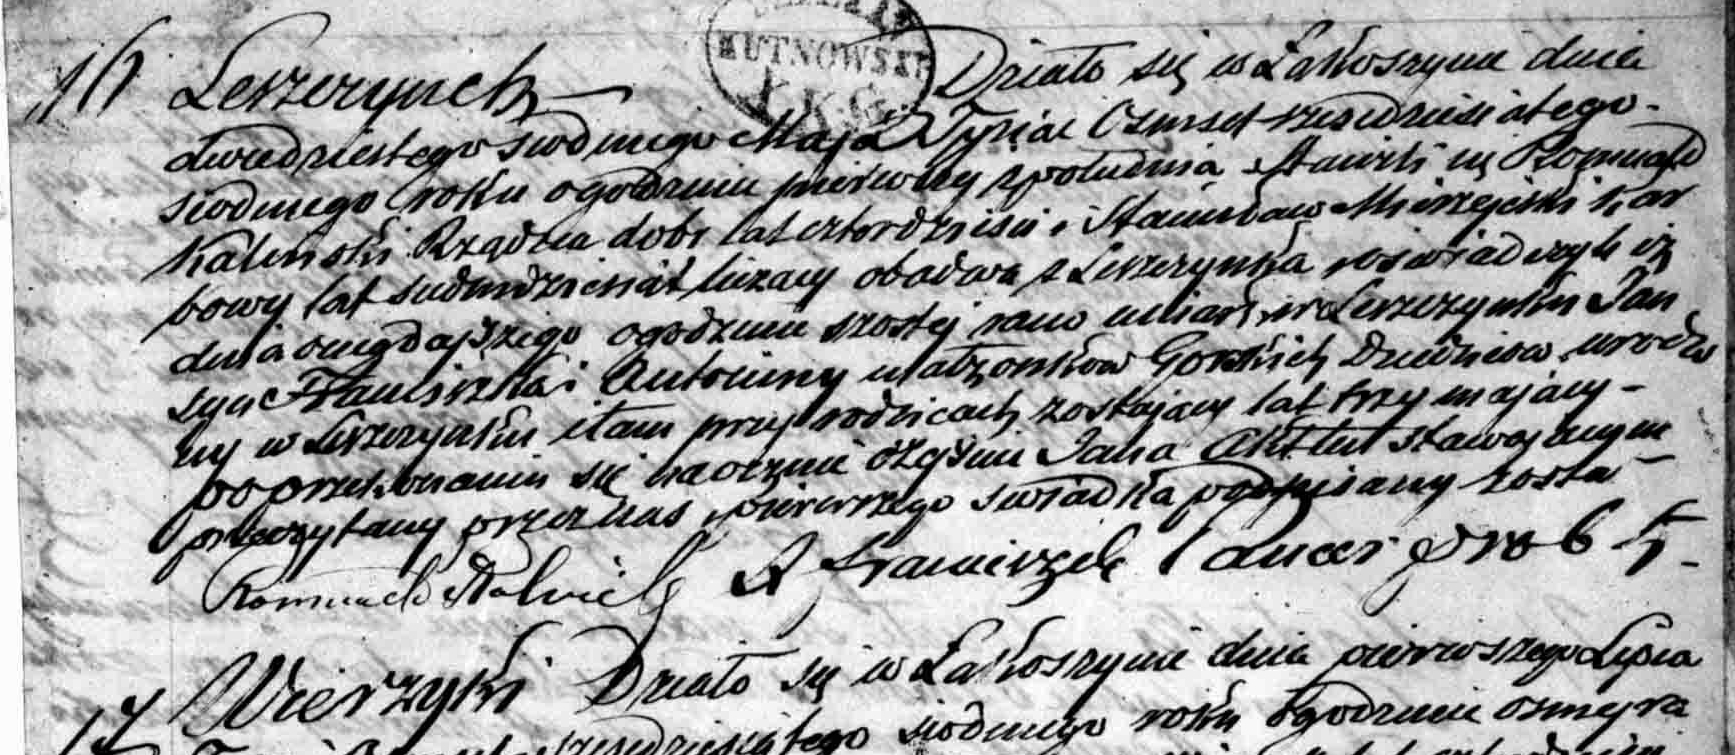 KUTNOWSKI
16 Leszczynek Działo się w Łakoszynie dnia
dwudziestego siodmego Maja Tysiąc Ośmset sześcdziesiątego
siodmego roku o godzinie pierwszy z południa stawili się Romuald
Kaliński Rządzca dobr lat czterdzieści i Stanisław Mierzejeski kar
bowy lat siedmdziesiąt liczący obadwa z Leszczynka i oświadczyli iż
dnia onegdajszego o godzinie szostej rano umiarł w Leszczynku Jan
syn Franciszka i Antoniny małżonków Gorskich Dziedzica, urodzo
ny w Leszczynku i tam przy rodzicach zostający lat trzy mający
po przekonaniu się naocznie o zejściu Jana Akt ten stawającym
przeczytany przez nas i pierwszego świadka podpisany został
Romuald X Franciszek prob Ł.
17 Wierzyki Działo się w Łakoszynie dnia pierwszego Lipca
sześcdziesiątego siodmego roku o godzinie osmej ra